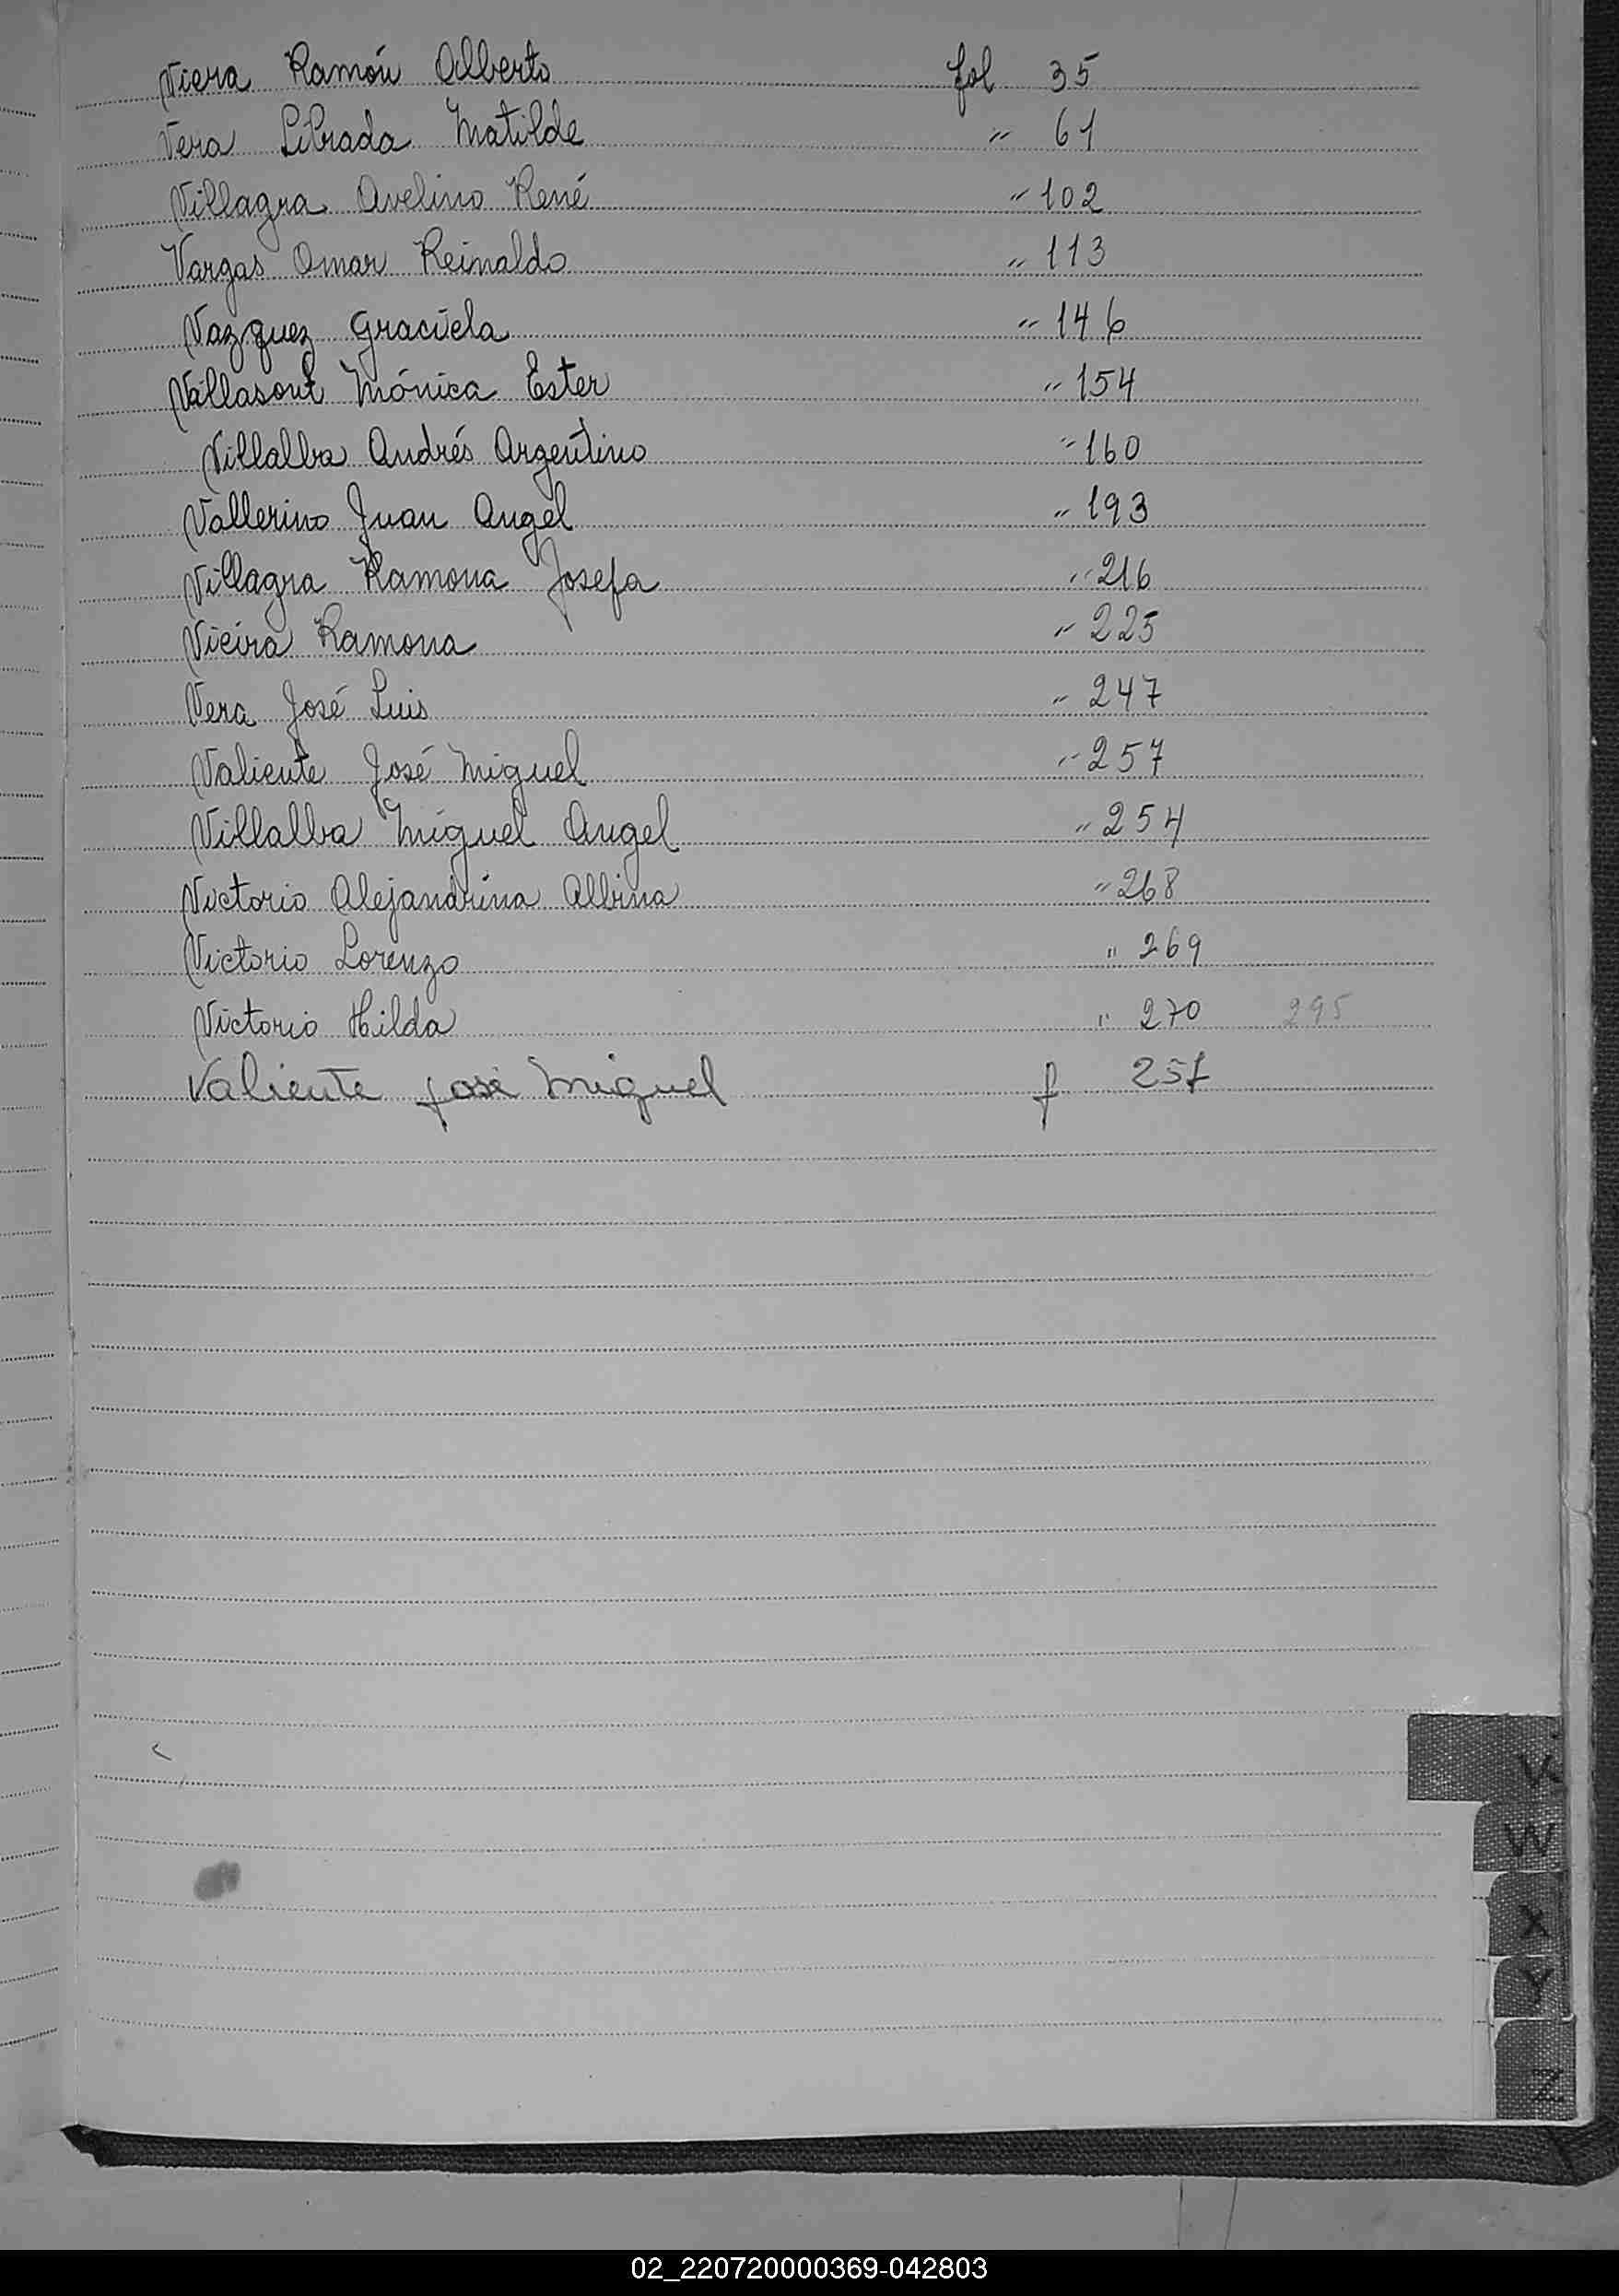 Viera Ramón Alberto fol 35
Vera Librada Matilde " 61
Villagra Avelino René " 102
Vargas Omar Reinaldo " 113
Vazquez Graciela " 146
Mónica Ester " 154
Villalba Andrés Argentino " 160
Vallerino Juan Angel " 193
Villagra Ramona Josefa " 216
Vieira Ramona " 225
Vera José Luis " 247
Valiente José Miguel " 257
Villalba Miguel Angel " 254
Victorio Alejandrina Albina " 268
Victorio Lorenzo " 269
Victorio Hilda " 270 295
Valiente José Miguel f 257
V
W
X
Y
Z
02_220720000369-042803